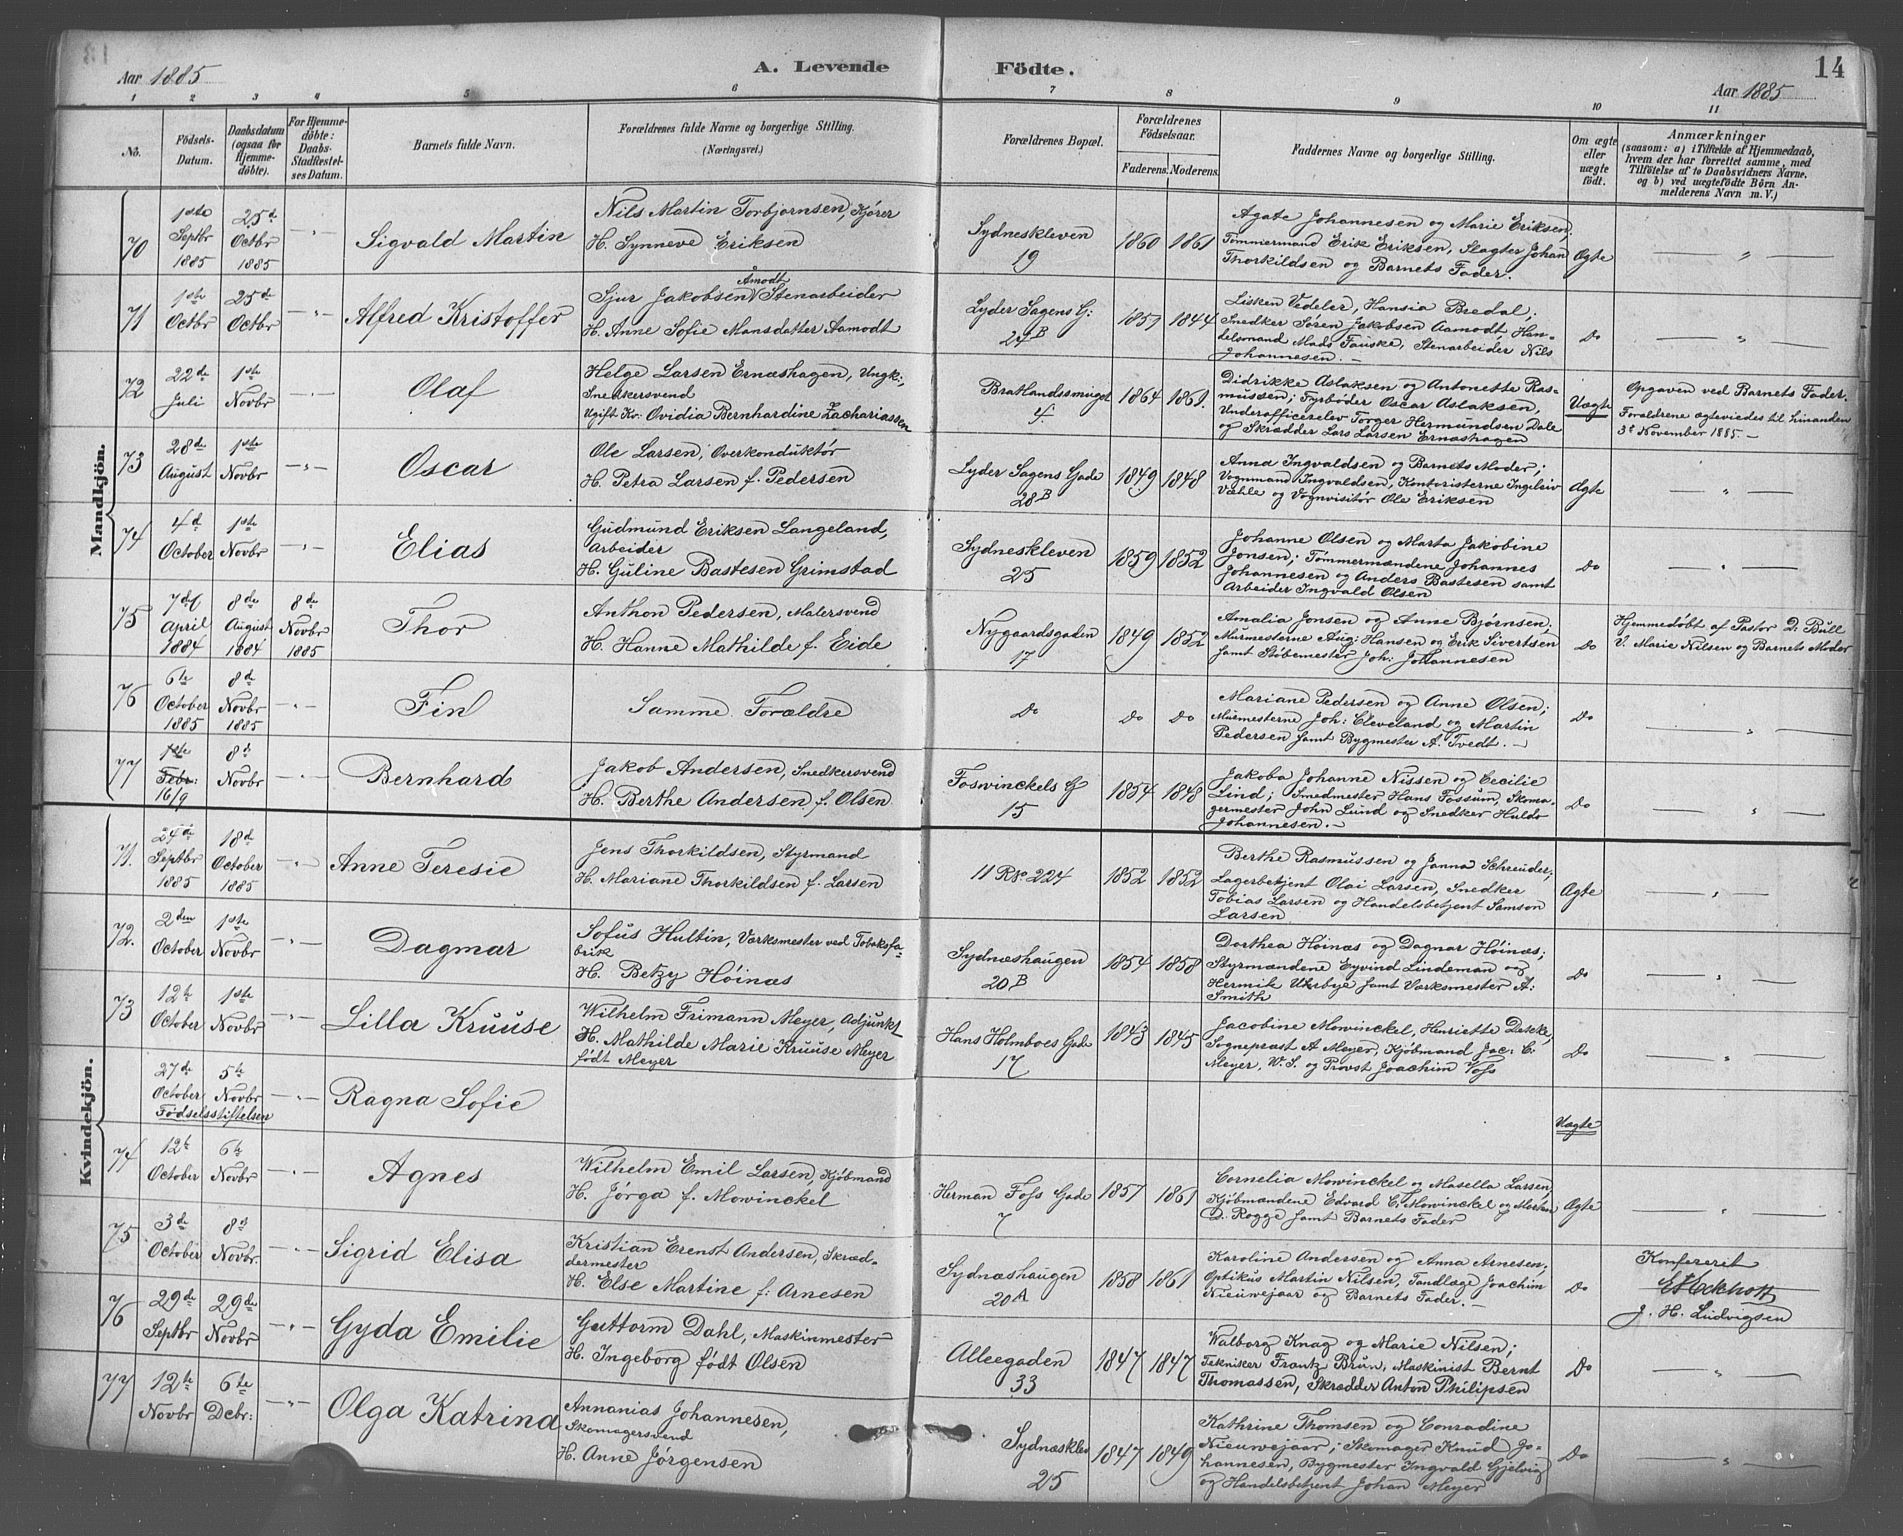 Aar 1885
A. Levende Födte.
14
Aar 1885
1 2 3 4 5 6 7 8 9 10 11
No.
Födsels-Datum.
Daabsdatum (ogsaa for Hjemme-döbte).
For Hjemme-döbte: Daabs-Stadfæstel-ses Datum.
Barnets fulde Navn.
Forældrenes fulde Navne og borgerlige Stilling.
(Næringsvei.)
Forældrenes Bopæl.
Forældrenes Födselsaar.
Faderens. Moderens.
Faddernes Navne og borgerlige Stilling.
Om ægte eller uægte födt.
Anmærkninger
(saasom: a) i Tilfælde af Hjemmedaab, hvem der har forrettet samme, med Tilföielse af to Daabsvidners Navne. og b) ved uægtefödte Börn An-melderens Navn m. V.)
Mandkjön.
70
1ste Septbr 1885
25d Octbr 1885
Sigvald Martin
Nils Martin Torbjørnsen, Kjører
H. Synneve Eriksen
Sydneskleven 19
1860 1861
Agate Johannesen og Marie Eriksen,
Tømmermand Erik Eriksen, Slagter Johan
Thorkildsen og Barnets Fader.
Ægte
71
1ste Octbr
25de Octbr
Alfred Kristoffer
Sjur Jakobsen Åmodt Stenarbeider
H. Anne Sofie Monsdatter Aamodt
Lyder Sagens G: 24B
1859 1844
Lisken Vedeler, Hansia Bredal;
Snedker Søren Jakobsen Aamodt, Han-
delsmand Mads Fauske, Stenarbeider Nils
Johannesen. —
Do
72
22de Juli
1ste Novbr
Olaf
Helge Larsen Ernæshagen, Ungk:,
Snedkersvend
Ugift Kv: Ovidia Bernhardine Zachariassen
Bratlandssmuget 4.
1864 1861.
Didrikke Aslaksen og Antonette Ras-
mussen; Fyrbøder Oscar Aslaksen,
Underofficerselev Torger Hermundsen Dale
og Skrædder Lars Larsen Ernæshagen
Uægte
Opgaven ved Barnets Fader.
Forældrene ægteviedes til hinanden
3d November 1885. —
73
28de August
1ste Novbr
Oscar
Ole Larsen, Overkonduktør
H. Petra Larsen f. Pedersen
Lyder Sagens Gade 28B
1849 1848
Anna Ingvaldsen og Barnets Moder;
Vognmand Ingvaldsen, Kontoristerne Ingileiv
Væhle og Vognvisitør Ole Eriksen
Ægte
74
4d October
1ste Novbr
Elias
Gudmund Eriksen Langeland,
Arbeider
H. Guline Bastesen Grimstad
Sydneskleven 25
1859 1852
Johanne Olsen og Marta Jakobine
Jonsen; Tømmermændene Johannes
Johannesen og Anders Bastesen samt
Arbeider Ingvald Olsen
Do
75
7de April 1884
8de August 1884
8de Novbr 1885
Thor
Anthon Pedersen, Malersvend
H. Hanne Mathilde f. Eide
Nygaardsgaden 17
1849 1852
Amalia Jonsen og Anne Bjørnsen,
Murmesterne Aug: Hansen og Erik Sivertsen
samt Støbemester Joh: Johannesen
Do
Hjemmedöbt af Pastor D. Bull
V. Marie Nilsen og Barnets Moder
76
6te October 1885
8d Novbr 1885
Fin
Samme Forældre
Do
Do Do
Mariane Pedersen og Anne Olsen;
Murmesterne Joh: Cleveland og Martin
Pedersen samt Bygmester A. Tvedt. —
Do
77
1ste Febr: 16/9
8d Novbr
Bernhard
Jakob Andersen, Snedkersvend
H. Berthe Andersen f. Olsen
Foswinckels G 15
1854 1848
Jakoba Johanne Nissen og Cecilie
Lind; Smedmester Hans Fossum, Skoma-
germester John Lund og Snedker Huldr
Johannesen. —
Do
Kvindekjön.
71.
24de Septbr 1885
18d October 1885
Anne Teresie
Jens Thorkildsen, Styrmand
H. Mariane Thorkildsen f. Larsen
11 R No 224
1852 1852
Berthe Rasmussen og Janna Schreuder;
Lagerbetjent Olai Larsen, Snedker
Tobias Larsen og Handelsbetjent Samson
Larsen
Ægte
72.
2den October
1ste Novbr
Dagmar
Sofus Hultin, Værksmester ved Tobaksfa-
brik
H. Betzy Höinæs
Sydnæshaugen 20B
1854 1858
Dorthea Höinæs og Dagnar Höinæs;
Styrmændene Eyvind Lindeman og
Hermik Uterbye samt Værksmester A:
Smith
Do
73
12te October
1ste Novbr
Lilla Kruuse
Wilhelm Frimann Meyer, Adjunkt
H. Mathilde Marie Kruuse Meyer
født Meyer
Hans Holmboes Gade 17
1843 1845
Jacobine Mowinckel, Henriette Detcke,
Sognepræst A Meyer, Kjöbmand Jac: C.
Meyer, W. S. og Provst Joachim Voss
Do
27de October
5te Novbr
Födselsstiftelsen
Ragna Sofie
Uægte
74
12te October
6te Novbr
Agnes
Wilhelm Emil Larsen, Kjöbmand
H. Jörga f. Mowinckel
Herman Foss Gade 7
1857 1861
Cornelia Mowinckel og Masella Larsen,
Kjöbmændene Edvard C. Mowinckel og Morten
D. Rogge samt Barnets Fader
Ægte
75
3de October
8d Novbr.
Sigrid Elisa
Kristian Erenst Andersen, Skræd-
dermester
H. Else Martine f. Arnesen
Sydnæshaugen 20A
1858 1861
Karoline Andersen og Anna Arnesen,
Optikus Martin Nilsen, Tandlæge Joachim
Nieuwejaar og Barnets Fader. —
Do
Konfererit
J. H. Ludvigsen
76
29de Septbr
29de Novbr
Gyda Emilie
Guttorm Dahl, Maskinmester
H. Ingeborg født Olsen
Alleegaden 33
1847 1847
Walborg Knag og Marie Nilsen;
Tekniker Frantz Brun, Maskinist Bernt
Thomassen, Skrædder Anton Philipsen
Do
77
12te Novbr
6te Dcbr:
Olga Katrina
Annanias Johannesen,
Skomagersvend
H. Anne Jørgensen
Sydnæsklev 25
1847 1849
Kathrine Thomsen og Conradine
Nieuwejaar; Skomager Knud Jo-
hannesen, Bygmester Ingvald Gjelvig
og Handelsbetjent Johan Meyer
Do